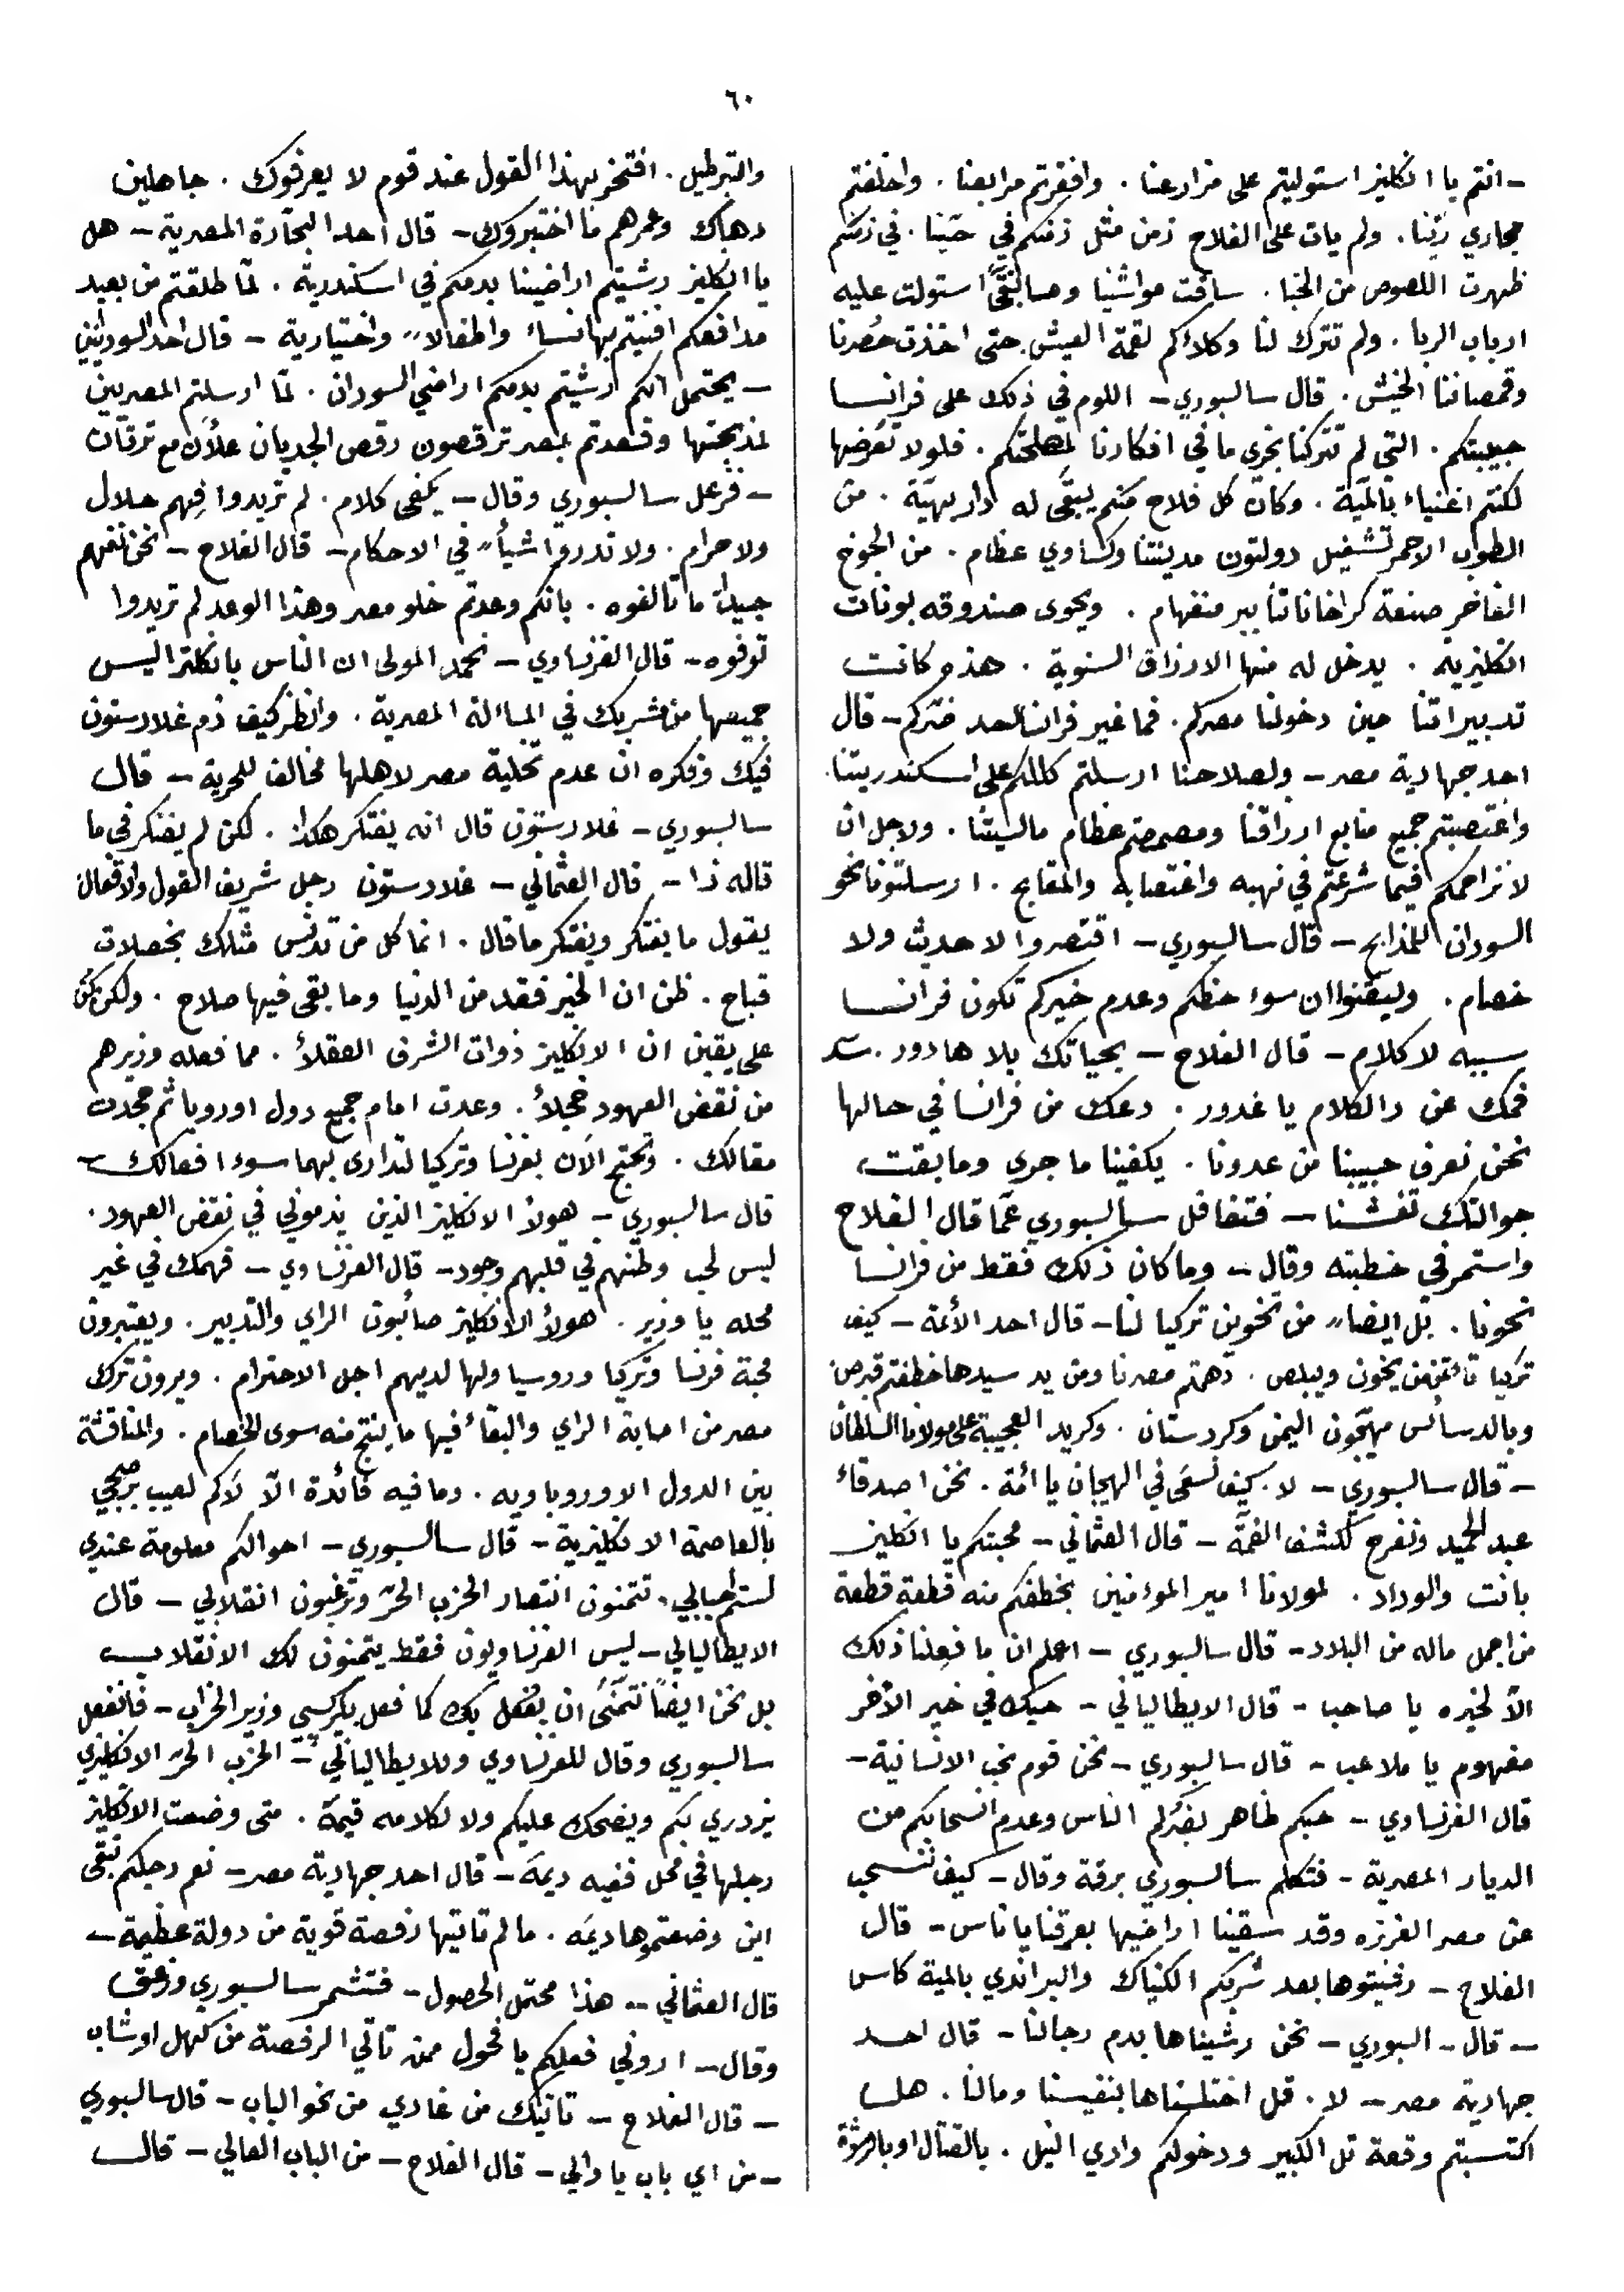 ٦٠
- انتم يا انكليز استوليتم على مزارعنا . وافقرتم مرابعنا . واخلفتم
مجاري ريّنا . ولم يات على الفلاح زمن مثل زمنكم في حبّنا . في زمنكم
ظهرت اللصوص من الخبا . ساقت مواشينا وما استولت عليه
ارباب الربا . ولم تترك لنا وكلاءكم لقمة العيش حتى اخذت حُصرنا
وقمصاننا الخيش . قال سالسبوري - اللوم في ذلك على فرانسا
حبيبتكم . التي لم تتركنا نجري ما في افكارنا لمصلحتكم . فلولا تعرضها
لكنتم اغنياء بالميّة . وكان كل فلاح منكم يبقى له دار بهيّة . من
الطوب الاحمر تشغيل دولتون مدينتنا وكساوي عظام . من الجوخ
الفاخر صنعة كراخاناتنا ببر منغهام . ويحوى صندوقه بونات
انكليزية . يدخل له منها الارزاق السنوية . هذه كانت
تدبيراتنا حين دخولنا مصركم . فما غير فرانسا لحد ضركم - قال
احد جهادية مصر - ولصلاحنا ارسلتم كللكم على اسكندريتنا .
واغتصبتم جميع منابع ارزاقنا ومصمصتم عظام ماليتنا . ولاجل ان
لا نزاحمكم فيما شرعتم في نهبه واغتصابه والمقابح . ارسلتونا نحو
السودان للمذابح - قال سالسبوري - اقتصروا لا حديث ولا
خصام . وتيقنوا ان سوء حظكم وعدم خيركم تكون فرانسا
سببه لا كلام - قال الفلاح - بحياتك بلا هادور . سد
فمك عن دالكلام يا غدور . دعك من فرانسا في حالها
نحن نعرف حبيبنا من عدونا . يكفينا ما جرى وما بقت
جوالتك تغشنا - فتغافل سالسبوري عمّا قال الفلاح
واستمر في خطبته وقال - وما كان ذلك فقط من فرانسا
نحونا . بل ايضاً من تخوين تركيا لنا - قال احد الأئمة - كيف
تركيا تأتمن من يخون ويبلص . دهمتم مصرنا ومن يد سيدها خطفتم قبرص
وبالدسائس مهيّجون اليمن وكردستان . وكريد العجيبة على مولانا السلطان
- قال سالسبوري - لا . كيف نسعى في الهيجان يا ائمة . نحن اصدقاء
عبد الحميد ونفرح لكشف الغمّة - قال العثماني - محبتكم يا انكليز
بانت والوداد . لمولانا امير المؤمنين بخطفكم منه قطعة قطعة
من اجمل ماله من البلاد - قال سالسبوري - اعلم ان ما فعلنا ذلك
الّا لخيره يا صاحب - قال الايطالياني - حبك في خير الآخر
مفهوم يا ملاعب - قال سالسبوري - نحن قوم نحب الانسانية -
قال الفرنساوي - حبكم ظاهر بغدركم الناس وعدم انسحابكم من
الديار المصرية - فتكلم سالسبوري برقة وقال - كيف ننسحب
عن مصر العزيزه وقد سقينا اراضيها بعرقنا يا ناس - قال
الفلاح - رشيتوها بعد شربكم الكنياك والبراندي بالمية كاس
- قال - البوري - نحن رشيناها بدم رجالنا - قال احد
جهادية مصر - لا . قل اختلسناها بنفيسنا ومالنا . هل
اكتسبتم وقعة تل الكبير ودخولكم وادي النيل . بالقتال او بالرشوة
والتبرطيل . افتخر بهذا القول عند قوم لا يعرفوك . جاهلين
دهاك وعمرهم ما اختبروك - قال احد البحّارة المصرية - هل
يا انكليز رشيتم اراضينا بدمكم في اسكندرية . لمّا طلقتم من بعيد
مدافعكم افنيتم بها نساءً واطفالاً واختيارية - قال احد السودانيين
- يحتمل انكم رشيتم بدمكم اراضي السودان . لمّا ارسلتم المصريين
لمذبحتها وقعدتم بمصر ترقصون رقص الجديان مع ترقان
- فزعل سالسبوري وقال - يكفى كلام . لم تريدوا فهم حلال
ولا حرام . ولا تدروا شيأً في الاحكام - قال الفلاح - نحن نفهم
جيداً ما تالفوه . بانكم وعدتم خلو مصر وهذا الوعد لم تريدوا
توفوه - قال الفرنساوي - نحمد المولى ان الناس بانكلترا ليس
جميعها من شريك في المسألة المصرية . وانظر كيف ذم غلادستون
فيك وفكره ان عدم تخلية مصر لاهلها مخالف للحرية - قال
سالسبوري - غلادستون قال انه يفتكر هكذا . لكن لم يفتكر في ما
قاله ذا - قال العثماني - غلادستون رجل شريف القول والافعال
يقول ما يفتكر ويفتكر ما قال . انما كل من تدنس مثلك بخصلات
قباح . ظن ان الخير فقد من الدنيا وما بقى فيها صلاح . ولكن نحن
على يقين ان الانكليز ذوات الشرف العقلاء . مما فعله وزيرهم
من نقض العهود خجلاء . وعدت امام جميع دول اوروبا ثم جحدت
مقالك . وتحتج الآن بفرنسا وتركيا لتداري بهما سوء افعالك -
قال سالسبوري - هولاء الانكليز الذين يذموني في نقض العهود .
ليس لحب وطنهم في قلبهم وجود - قال الفرنساوي - فهمك في غير
محله يا وزير . هولاء الانكليز صائبون الراي والتدبير . ويعتبرون
محبة فرنسا وتركيا وروسيا ولها لديهم اجل الاحترام . ويرون ترك
مصر من اصابة الراي والبقاء فيها ما ينتج منه سوى الخصام . والمناقشة
بين الدول الاوروباويه . وما فيه فائدة الّا لكم لعيب برجي
بالعاصمة الانكليزية - قال سالسبوري - احوالكم معلومة عندي
لستم احبابي . تتمنون انتصار الحزب الحرّ وترغبون انقلابي - قال
الايطالياني - ليس الفرنساويون فقط يتمنون لك الانقلاب
بل نحن ايضاً نتمنّى ان يفعل بك كما فعل بكرسبي وزير الخراب - فانفعل
سالسبوري وقال للفرنساوي وللايطالياني - الحزب الحرّ الانكليزي
يزدري بكم ويضحك عليكم ولا لكلامه قيمة . متى وضعت الانكليز
رجلها في محل ففيه ديمة - قال احد جهادية مصر - نعم رجلكم تبقى
اين وضعتموها ديمَه . ما لم تاتيها رفصة قوية من دولة عظيمة -
قال العثماني - هذا محتمل الحصول - فتشمر سالسبوري وزعق
وقال - اروني فعلكم يا فحول ممن تاتي الرفصة من كهل او شاب
- قال الفلاح - تاتيك من غادي من نحو الباب - قال سالسبوري
- من اي باب يا دالي - قال الفلاح - من الباب العالي - قال